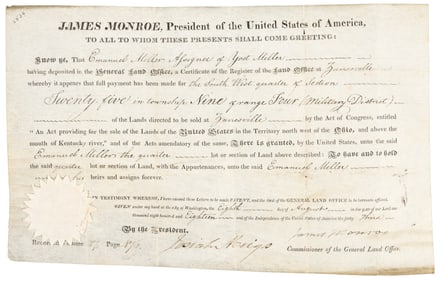 JAMES MONROE, President of the United States of America,
TO ALL TO WHOM THESE PRESENTS SHALL COME GREETING:
Know ye, That Emanuel Miller Assignee of Yost Miller
having deposited in the General Land Office, a Certificate of the Register of the Land Office at Zanesville
whereby it appears that full payment has been made for the South West quarter of Section
Twenty five in township Nine of range Four (Military District)
of the Lands directed to be sold at Zanesville by the Act of Congress, entitled
"An Act providing for the sale of the Lands of the United States in the Territory north west of the Ohio, and above the
mouth of Kentucky river," and of the Acts amendatory of the same, There is granted, by the United States, unto the said
Emanuel Miller the quarter lot or section of Land above described: To have and to hold
the said quarter lot or section of Land, with the Appurtenances, unto the said Emanuel Miller
his heirs and assigns forever.
IN TESTIMONY WHEREOF, I have caused these Letters to be made PATENT, and the Seal of the GENERAL LAND OFFICE to be hereunto affixed.
GIVEN under my hand at the City of Washington, the Eighth day of August in the year of our Lord one
thousand eight hundred and Eighteen and of the Independence of the United States of America the forty third
By the President,
James Monroe
Josiah Meigs
Commissioner of the General Land Office.
Page